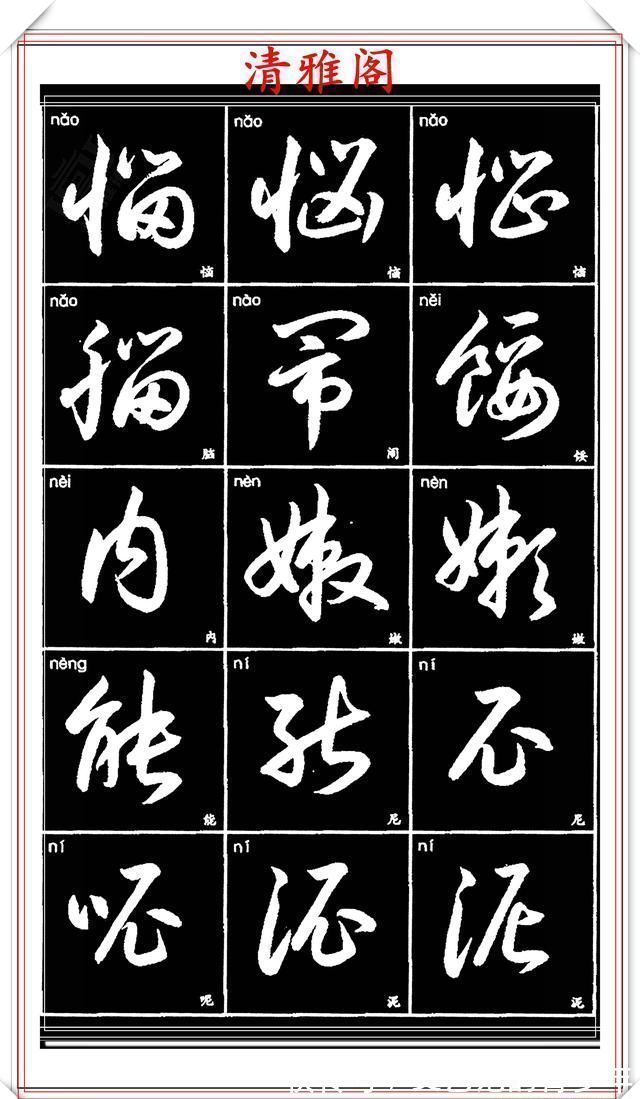 清雅阁
nǎo nǎo nǎo
恼 恼 恼
恼 恼 恼
nǎo nào něi
脑 闹 馁
脑 闹 馁
nèi nèn nèn
内 嫩 嫩
内 嫩 嫩
nèng ní ní
能 尼 尼
能 尼 尼
ní ní ní
呢 泥 泥
呢 泥 泥